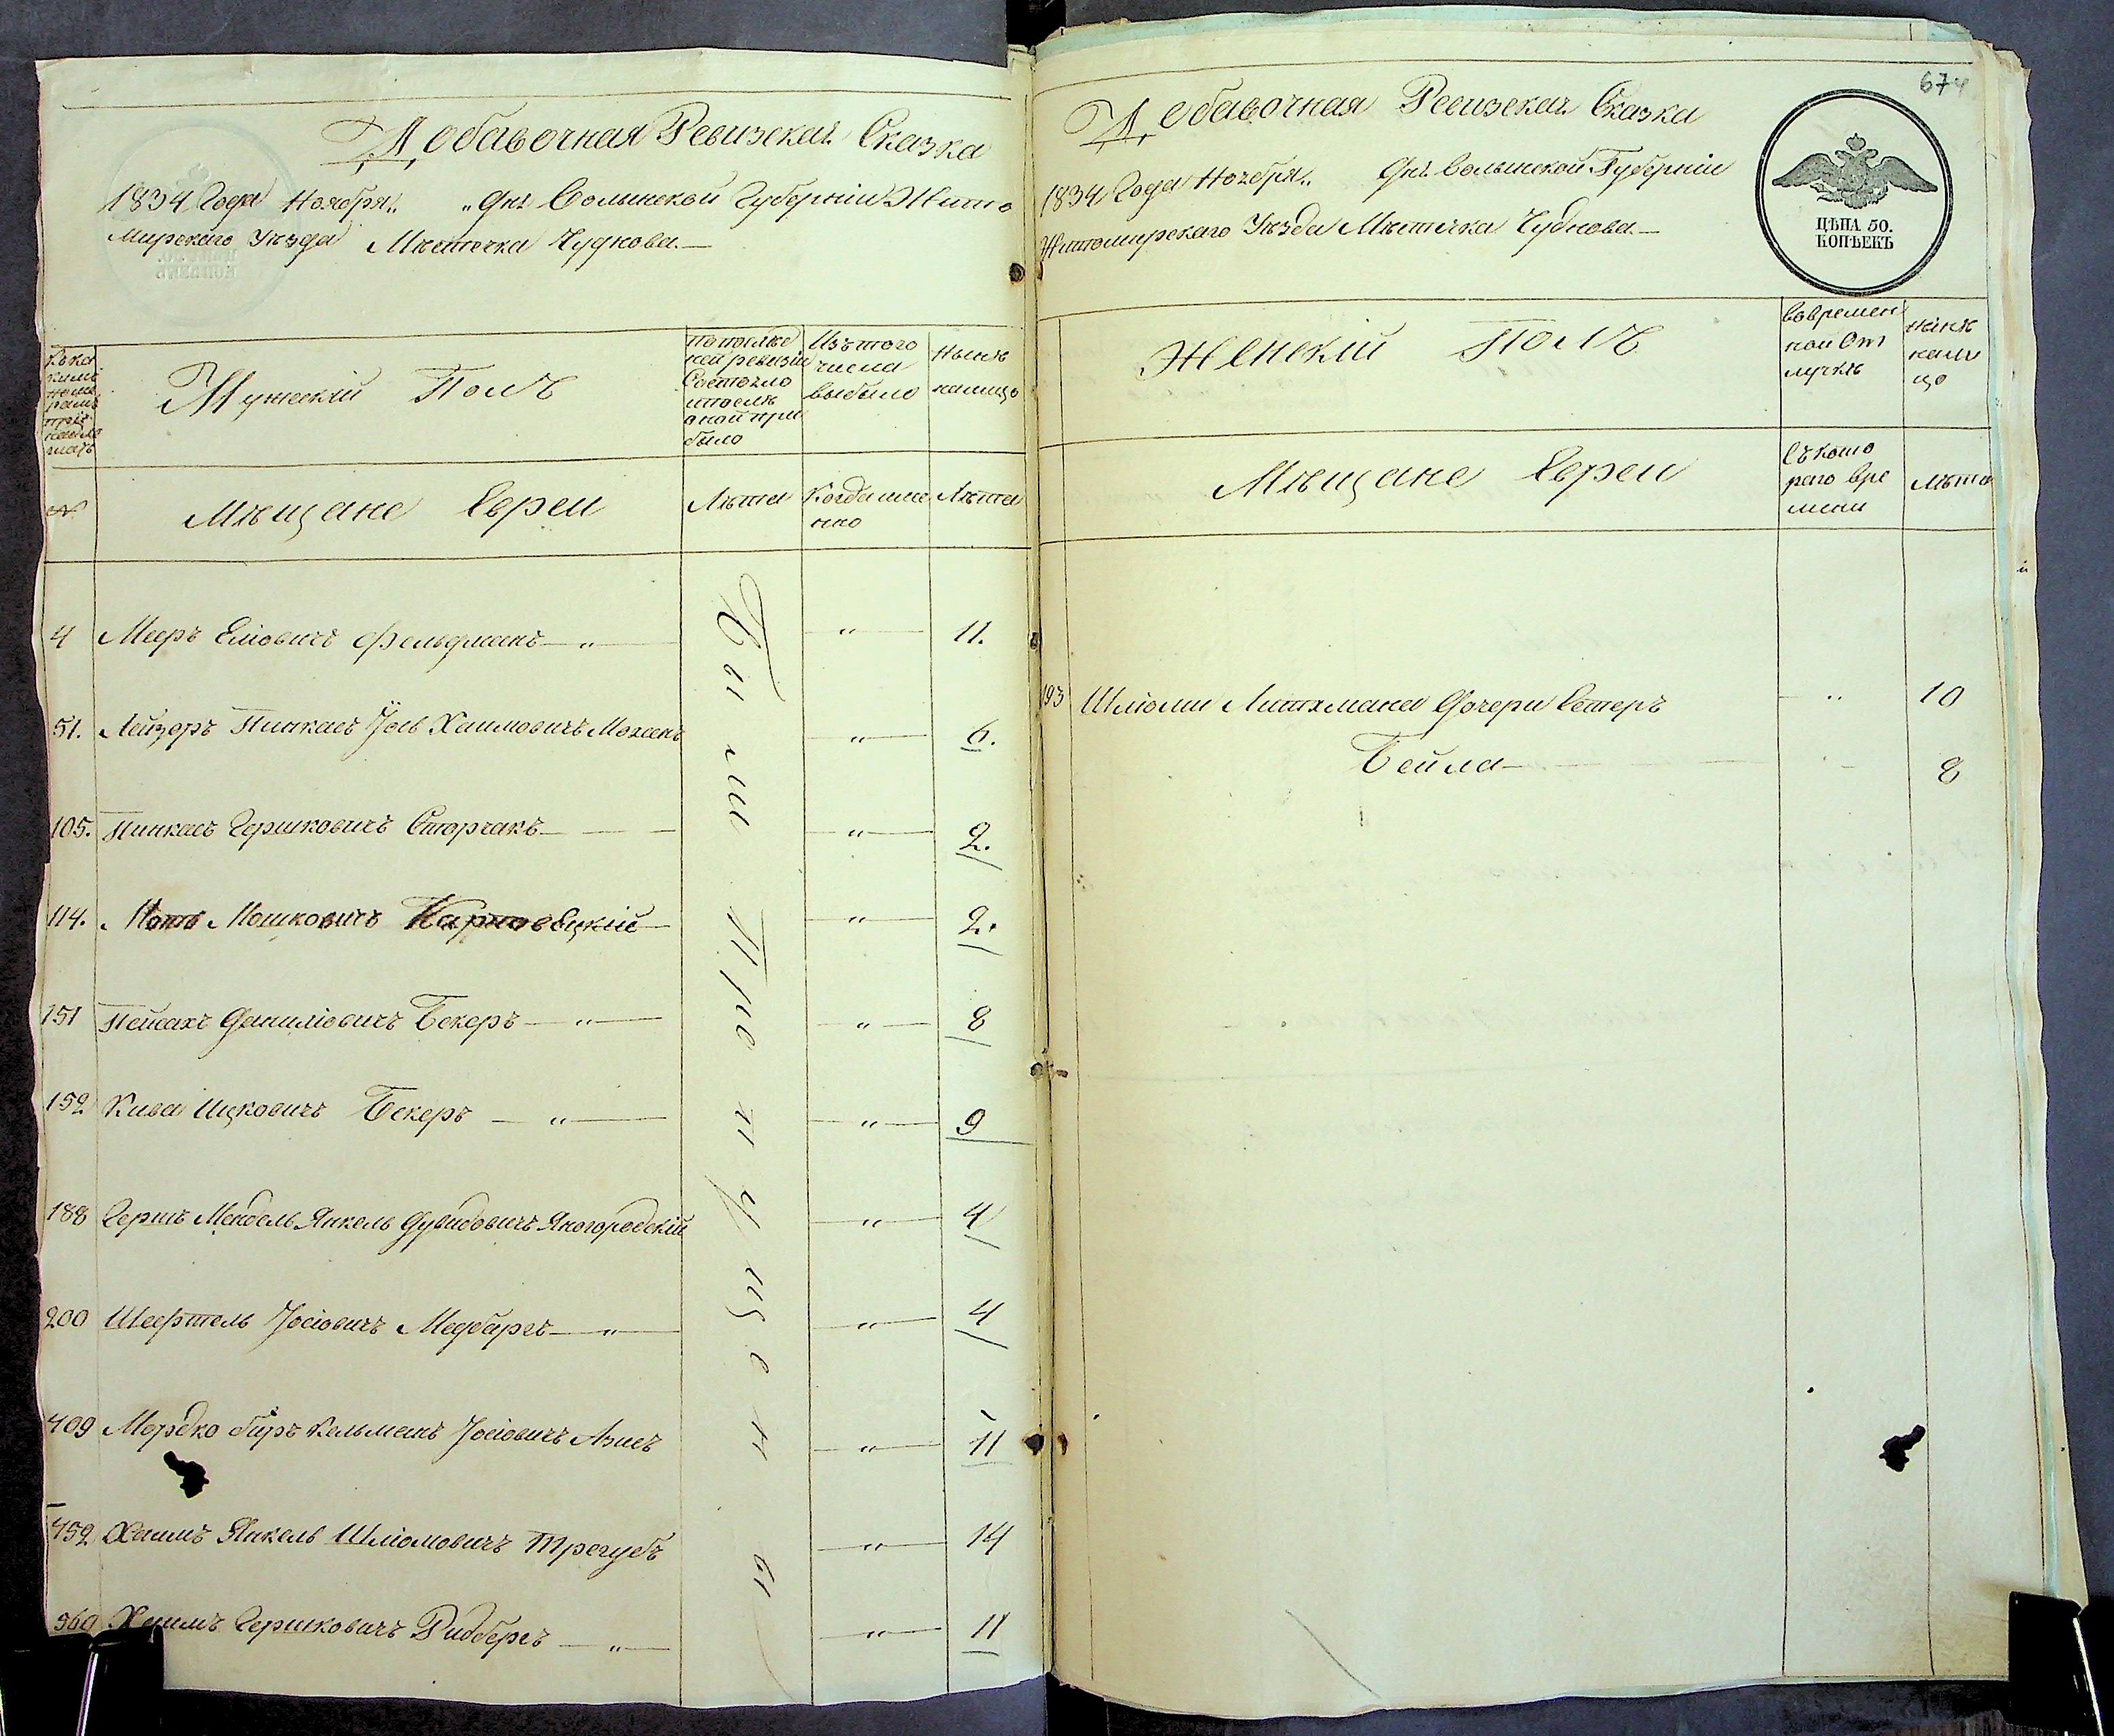 Добавочная Ревизская Сказка
1834 Года Ноября „ „ дня Волынской Губернии Жито
мирскаго Уѣзда Мѣстечка Чуднова.—
Мужескій Полъ
По послѣд
ней ревизіи
Состояло
и послѣ
оной при
было
Изъ того
числа
выбыло
Нынѣ
налицо
№
Мѣщане Евреи
Лѣта
Когда имен
но
Лѣта
Были Пропущены
4 Мееръ Еліовичъ Фельдманъ — „ — „ — 11.
51. Лейзоръ Пинкасъ Іось Хаимовичъ Моханъ — „ — 6.
105. Пинкасъ Гершковичъ Сторчакъ — „ — 2.
114. Мошковичъ — „ — 2.
151 Пейсахъ Даниліовичъ Бекеръ — „ — „ — 8
152 Кива Ицковичъ Бекеръ — „ — „ — 9
188 Гершъ Мендель Янкель Дувидовичъ Яногородскій — „ — 4
200 Шефтель Іосіовичъ Медбаргъ — „ — „ — 4
409 Мордко Беръ Кельманъ Іосіовичъ — „ — 11
452 Хаимъ Янкель Шліомовичъ Трегубъ — „ — 14
560 Хаимъ Гершковичъ Ридбергъ — „ — „ — 11
674
Добавочная Ревизская Сказка
1834 Года Ноября „ дня Волынской Губерніи
Житомирскаго Уѣзда Мѣстечка Чуднова —
ЦѢНА 50.
КОПѢЕКЪ
Женскій Полъ
Во времен
ной От
лучкѣ
Нынѣ
нали
цо
Мѣщане Евреи
Съ кото
раго вре
мени
Лѣта
193 Шліоми Литхмана Дочери Естеръ — „ 10
Бейла — 8